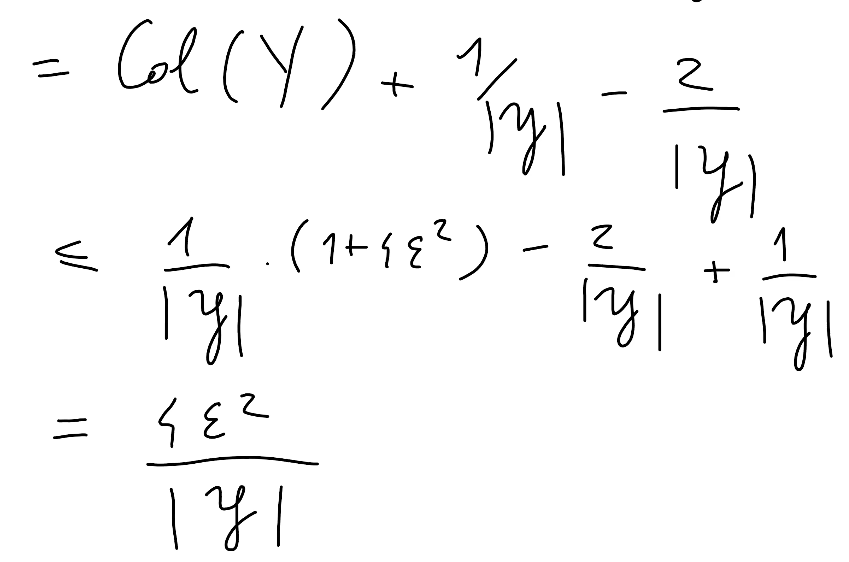 = Col(Y) + 1/|𝒴| - 2/|𝒴|
≤ 1/|𝒴| · (1+4ε²) - 2/|𝒴| + 1/|𝒴|
= 4ε²/|𝒴|